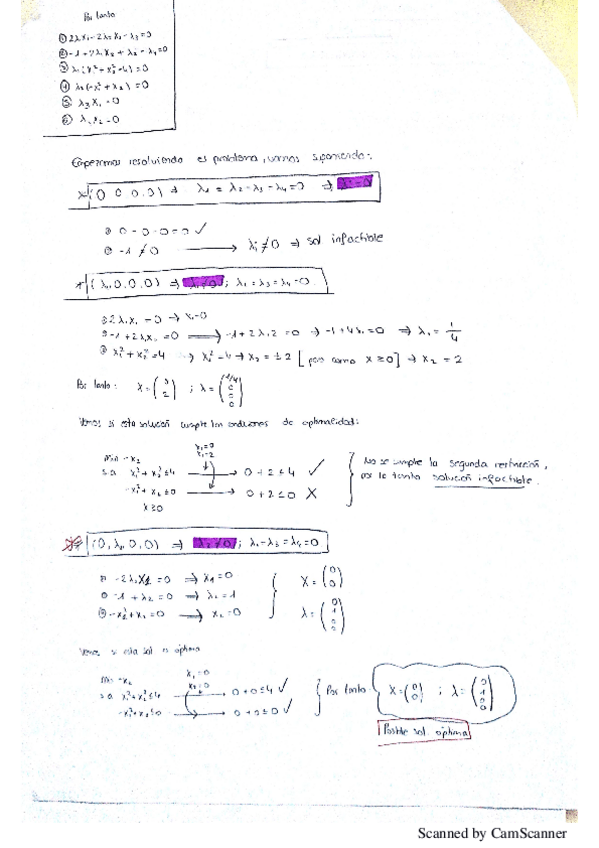 Por tanto
① 2λ₁x₁-2λ₂x₁-λ₃=0
② -1+2λ₁x₂+λ₂-λ₄=0
③ λ₁(x₁²+x₂²-4)=0
④ λ₂(-x₁²+x₂)=0
⑤ λ₃x₁=0
⑥
Empezamos resolviendo el problema, vamos suponiendo:
(0,0,0,0) → λ₁=λ₂=λ₃=λ₄=0 ⇒
① 0-0-0=0 ✓
② -1≠0 → λ₁≠0 ⇒ sol infactible
(λ₁,0,0,0) ⇒ λ₁≠0; λ₂=λ₃=λ₄=0
① 2λ₁x₁=0 → x₁=0
② -1+2λ₁x₂=0 → -1+2λ₁2=0 → -1+4λ₁=0 ⇒ λ₁=1/4
③ x₁²+x₂²=4 → x₂²=4 → x₂=±2 [pero como x≥0] → x₂=2
Por tanto: x=(0 2) ; λ=(1/4 0 0 0)
Vemos si esta solución cumple las condiciones de optimalidad:
x₁=0
x₂=2
min -x₂
s.a x₁²+x₂²≤4 → 0+2≤4 ✓
-x₁²+x₂≤0 → 0+2≤0 X
x≥0
No se cumple la segunda restricción,
por lo tanto solución infactible.
(0,λ₂,0,0) ⇒ λ₂≠0; λ₁=λ₃=λ₄=0
① -2λ₂x₁=0 ⇒ x₁=0
② -1+λ₂=0 ⇒ λ₂=1
④ -x₁²+x₂=0 → x₂=0
x=(0 0)
Vemos si esta sol es óptima
x₁=0
x₂=0
Min -x₂
s.a x₁²+x₂²≤4 → 0+0≤4 ✓
-x₁²+x₂≤0 → 0+0≤0 ✓
Por tanto x=(0 0) ; λ=(0 1 0 0)
Posible sol. óptima
Scanned by CamScanner